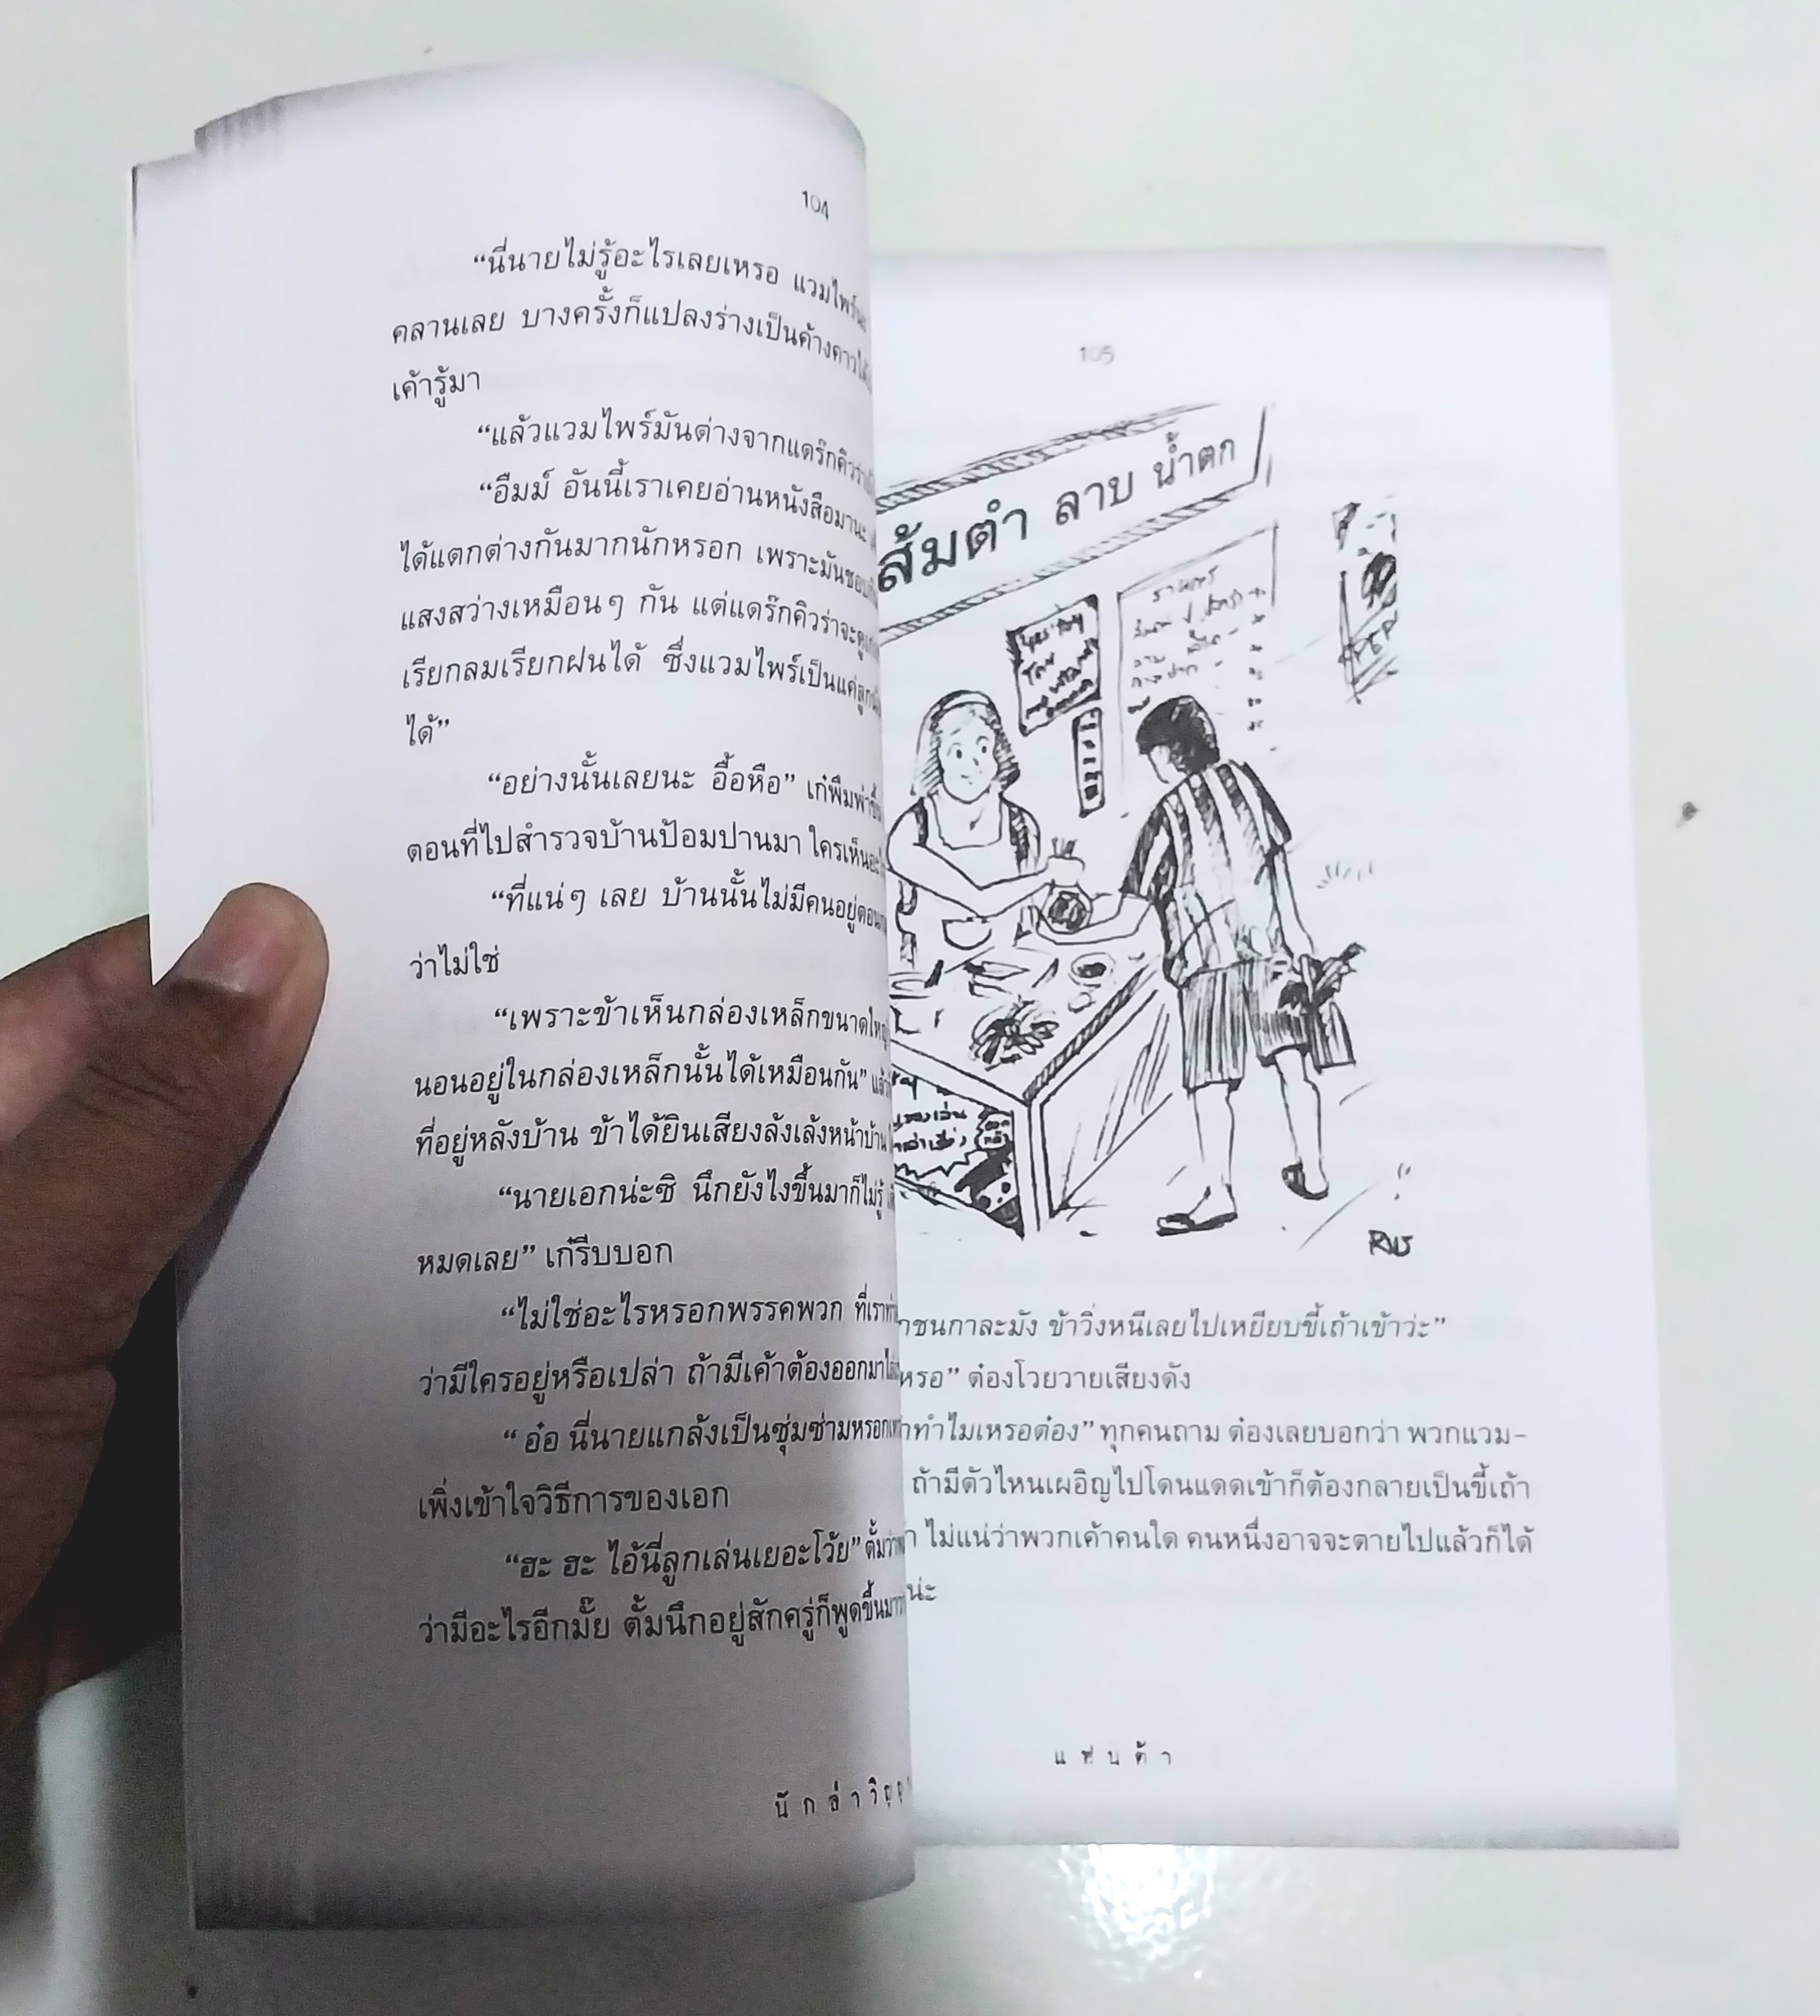 104
“นี่นายไม่รู้อะไรเลยเหรอ แวมไพร์
คลานเลย บางครั้งก็แปลงร่างเป็นค้างคาว
เค้ารู้มา
“แล้วแวมไพร์มันต่างจากแดร๊กคิวร่า
“อืมม์ อันนี้เราเคยอ่านหนังสือมานะ
ได้แตกต่างกันมากนักหรอก เพราะมันชอบ
แสงสว่างเหมือนๆ กัน แต่แดร๊กคิวร่าจะดู
เรียกลมเรียกฝนได้ ซึ่งแวมไพร์เป็นแค่ลูก
ได้”
“อย่างนั้นเลยนะ อื้อหือ” เก๋พึมพำขึ้น
ตอนที่ไปสำรวจบ้านป้อมปานมา ใครเห็นอะ
“ที่แน่ๆ เลย บ้านนั้นไม่มีคนอยู่ตอน
ว่าไม่ใช่
“เพราะข้าเห็นกล่องเหล็กขนาดใหญ่
นอนอยู่ในกล่องเหล็กนั้นได้เหมือนกัน” แล้ว
ที่อยู่หลังบ้าน ข้าได้ยินเสียงล้งเล้งหน้าบ้าน
“นายเอกน่ะซิ นึกยังไงขึ้นมาก็ไม่รู้
หมดเลย” เก๋รีบบอก
“ไม่ใช่อะไรหรอกพรรคพวก ที่เรา
ว่ามีใครอยู่หรือเปล่า ถ้ามีเค้าต้องออกมา
“ อ๋อ นี่นายแกล้งเป็นซุ่มซ่ามหรอก
เพิ่งเข้าใจวิธีการของเอก
“ฮะ ฮะ ไอ้นี่ลูกเล่นเยอะโว้ย” ตั้มว่า
ว่ามีอะไรอีกมั๊ย ตั้มนึกอยู่สักครู่ก็พูดขึ้นมา
นักล่าวิญ
105
ส้มตำ ลาบ น้ำตก
RWS
ชนกาละมัง ข้าวิ่งหนีเลยไปเหยียบขี้เถ้าเข้าว่ะ”
หรอ” ต๋องโวยวายเสียงดัง
ทำไมเหรอต๋อง” ทุกคนถาม ต๋องเลยบอกว่า พวกแวม-
ถ้ามีตัวไหนเผอิญไปโดนแดดเข้าก็ต้องกลายเป็นขี้เถ้า
ไม่แน่ว่าพวกเค้าคนใด คนหนึ่งอาจจะตายไปแล้วก็ได้
น่ะ
แพนด้า